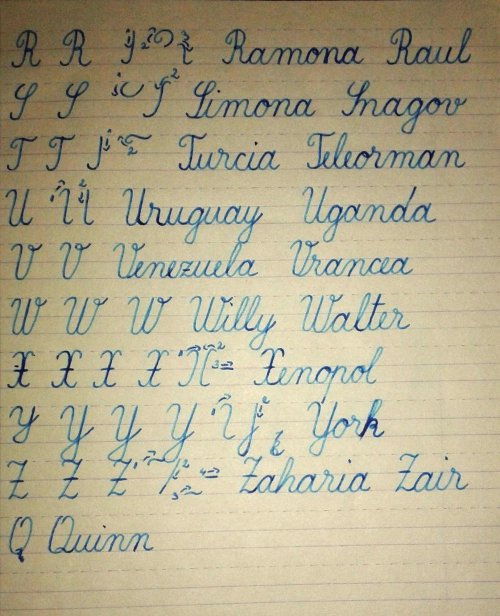 R R Ramona Raul
S S Simona Snagov
T T Turcia Teleorman
U U Uruguay Uganda
V V Venezuela Vrancea
W W W Willy Walter
X X X X Xenopol
Y Y Y Y York
Z Z Z Zaharia Zair
Q Quinn